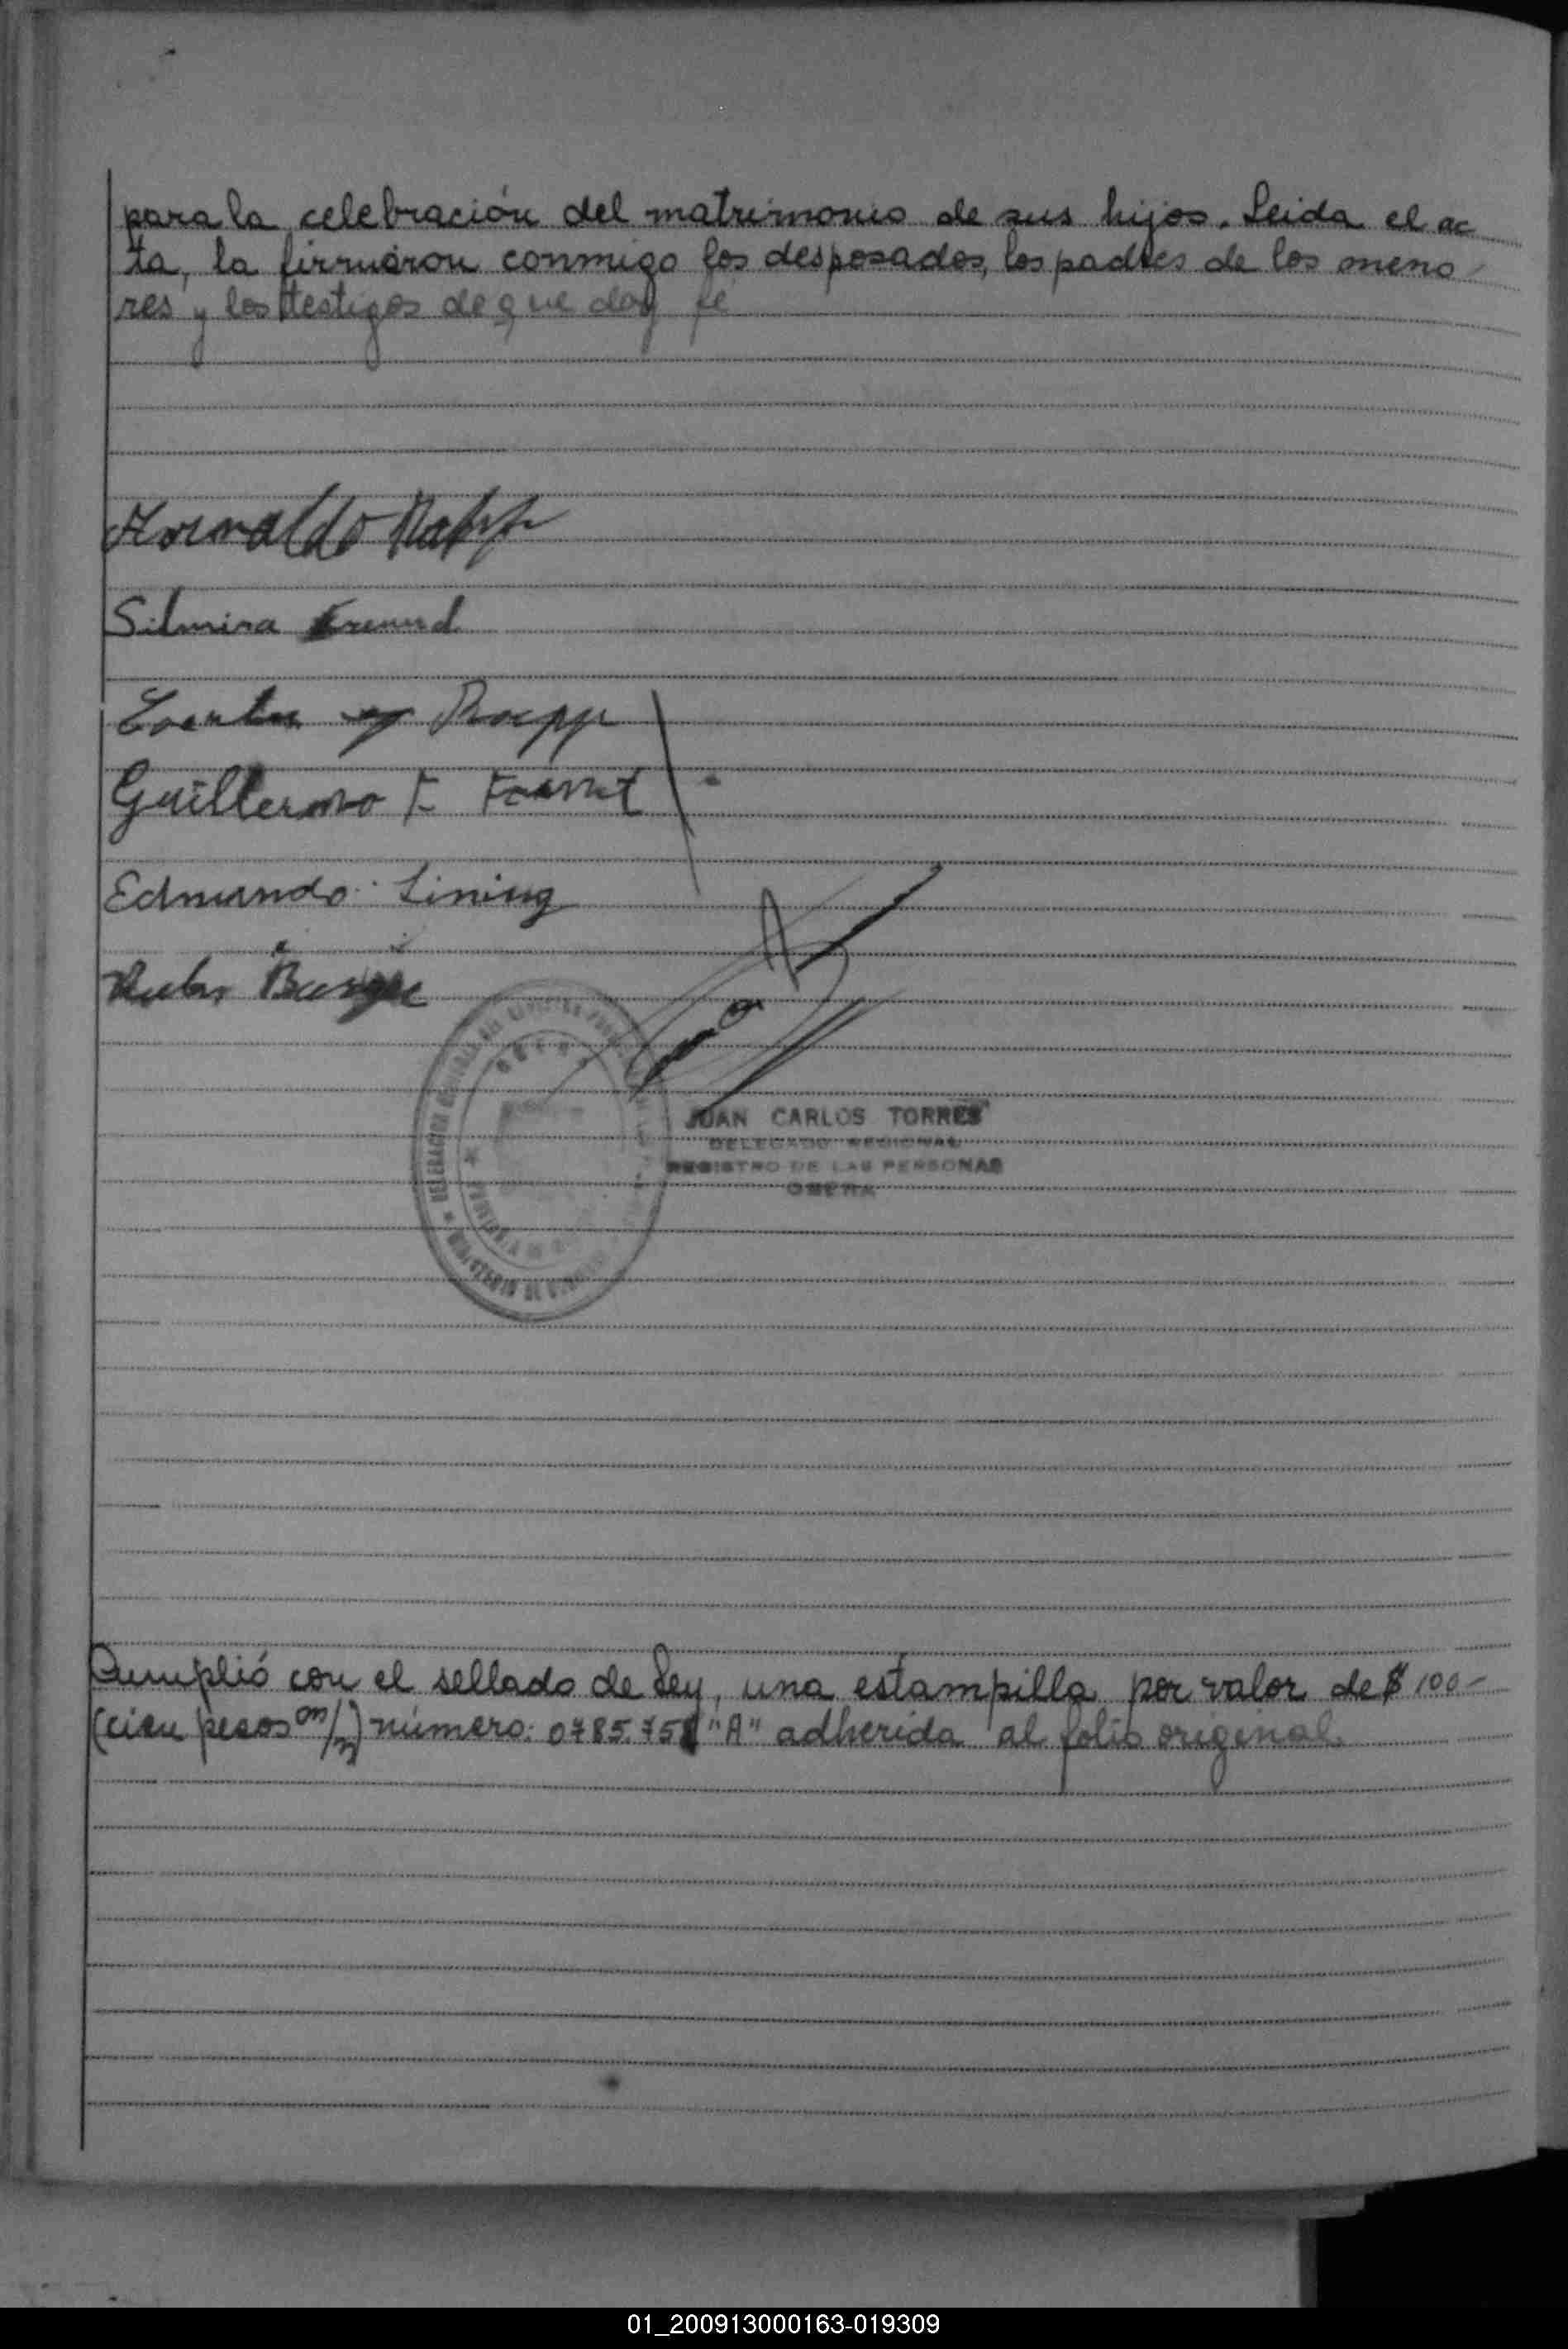 para la celebración del matrimonio de sus hijos. Leida el ac
ta, la firmaron conmigo los desposados, los padres de los meno
res y los testigos de que doy fé
Silmira Freund
Rapp
Guillermo F.
Edmundo Lining
JUAN CARLOS TORRES
DELEGADO REGIONAL
REGISTRO DE LAS PERSONAS
OBERA
Cumplió con el sellado de Ley, una estampilla por valor de $ 100-
(cien pesos m/n) número: 0785.751 "A" adherida al folio original.
01_200913000163-019309